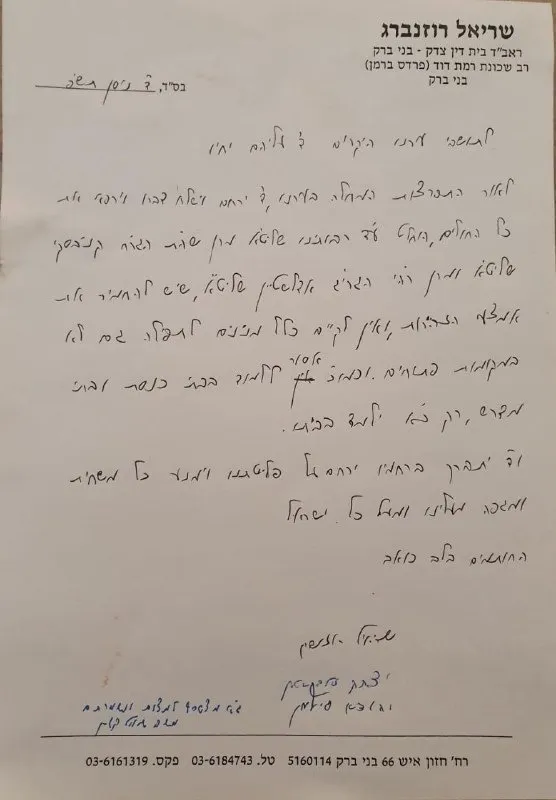 שריאל רוזנברג
ראב"ד בית דין צדק - בני ברק
רב שכונת רמת דוד (פרדס ברמן)
בני ברק
בס"ד, ד' ניסן תש"פ
לתושבי עירנו היקרים ד' עליהם יחיו
לאור התפרצות המחלה בעירנו, ד' ירחם וישלח דברו וירפא את
כל החולים, הוחלט ע"ד רבותינו שליט"א מרן שה"ת הגר"ח קניבסקי
שליט"א ומרן רה"י הגר"ג אדלשטיין שליט"א, שיש להחמיר את
אמצעי הזהירות, ואין לקיים כלל מנינים לתפלה גם לא
במקומות פתוחים. וכמו"כ אסור ללמוד בבתי כנסת ובתי
מדרש, רק כ"א ילמד בביתו.
וד' יתברך ברחמיו ירחם על פליטתנו וימנע כל משחית
ומגפה מעלינו ומעל כל ישראל
החותמים בלב כואב
שריאל רוזנברג
יצחק
יהודא סילמן
רח' חזון איש 66 בני ברק 5160114 טל. 03-6184743 פקס. 03-6161319